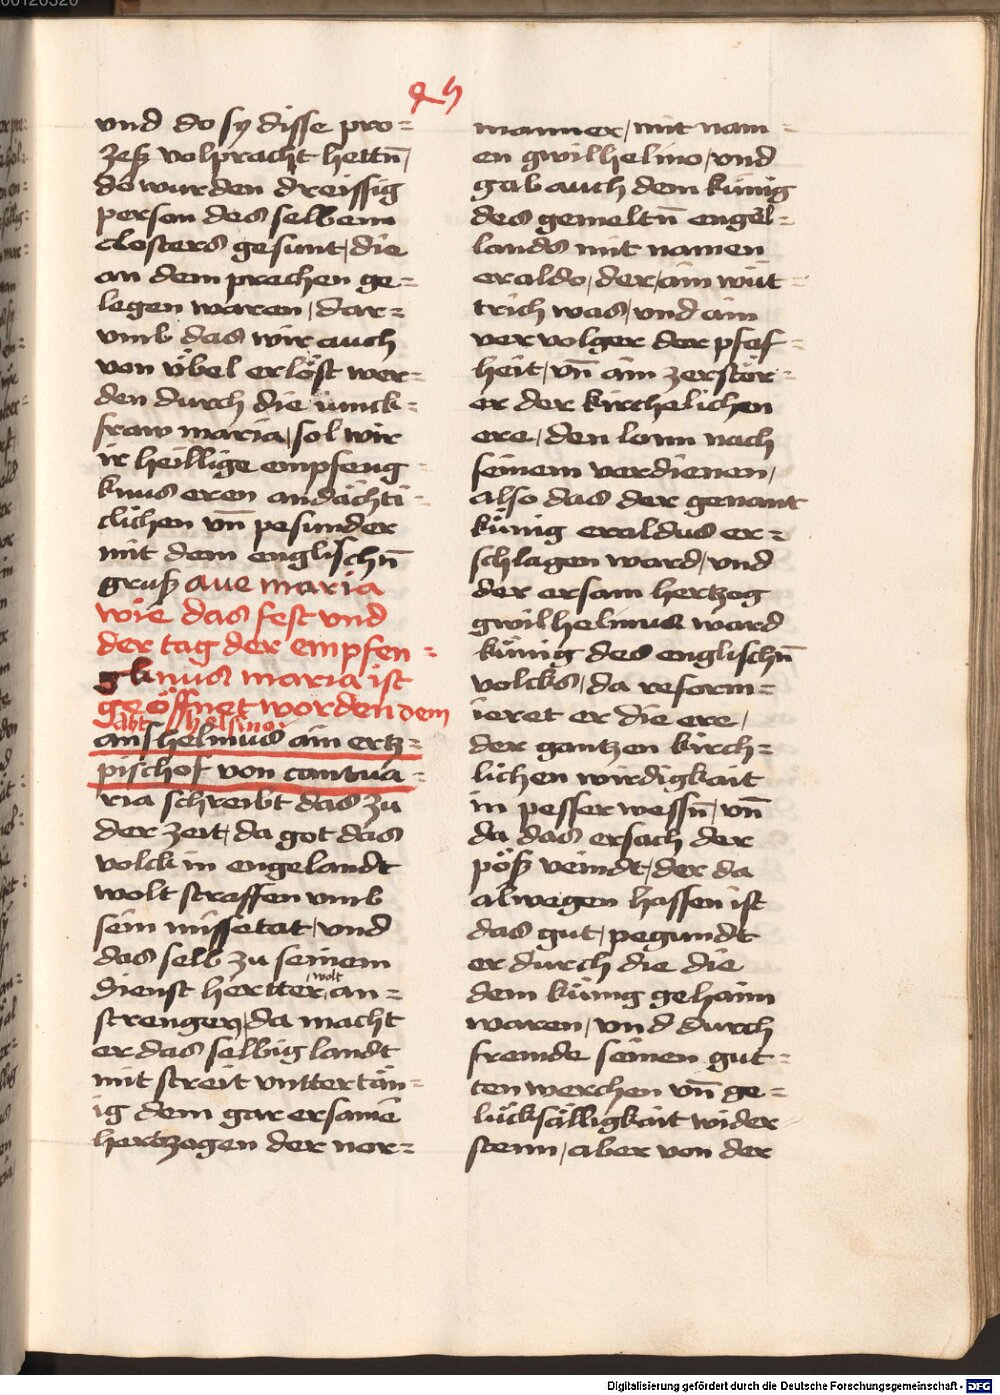 und do sy disse pro=
zeß volpracht hettn̄/
do wurden dreissig
person des selbem
closters gesunt/ die
an dem prechen ge=
legen waren/ dar=
umb das wir auch
von übel erlöst wer=
den durch die iunck=
fraw maria/ sol wir
ir heillige empfeng=
knus eren andächti=
clichen vn̄ pesunder
mit dem englischn̄
gruß ave maria
wie das fest und
der tag der empfen=
gknus maria ist
geöffnet worden dem
abt helsino
anshelmus ain ertz=
pischof von cantua=
ria schreibt das zu
der zeit/ da got das
volck in engelandt
wolt straffen umb
sein missetat/ und
das selb zu seinem
wolt
dienst hertter/ an=
strengen/ da macht
er das selbig landt
mit streit unttertän=
ig dem gar ersamē
hertzogen der nor=
manner/ mit nam=
en gwilhelmo/ und
gab auch dem künig
des gemeltn̄ engel=
lands mit namen
eraldo/ der/ ain wüt=
trich was/ und ain
vervolger der pfaf=
heit/ vn̄ ain zerstör=
er der kirchelichen
ere/ den lonn nach
seinem verdienen/
also das der genant
künig eraldus er=
schlagen ward/ und
der ersam hertzog
gwilhelmus ward
künig des englischn̄
volcks/ da reform=
ieret er die ere/
der gantzen kirch=
lichen wirdigkait
in pesser wessn̄/ vn̄
da das ersach der
pöß veindt/ der da
alwegen hassen ist
das gut/ pegundt
er durch die die
dem künig gehaim
waren/ und durch
fremde seinen gut=
ten werchen vn̄ ge=
lücksälligkait wider
stenn/ aber von der
Digitalisierung gefördert durch die Deutsche Forschungsgemeinschaft - DFG